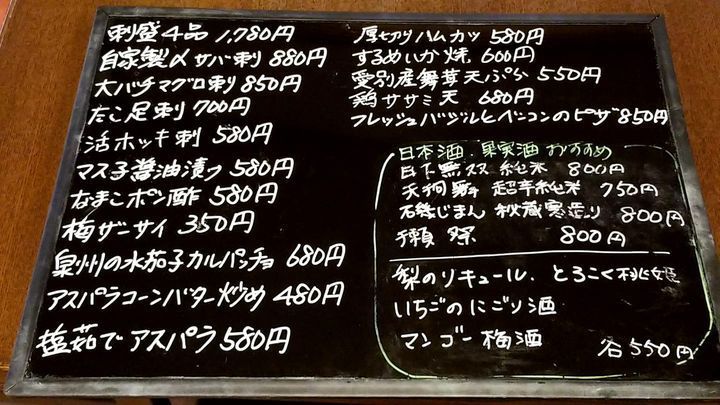 刺盛4品 1,780円
自家製〆サバ刺 880円
大バチマグロ刺 850円
たこ足刺 700円
活ホッキ刺 580円
マス子醤油漬ケ 580円
なまこポン酢 580円
梅ザーサイ 350円
泉州の水茄子カルパッチョ 680円
アスパラコーンバター炒め 480円
塩茹でアスパラ 580円
厚切りハムカツ 580円
するめいか焼 600円
愛別産舞茸天ぷら 550円
鶏ササミ天 680円
フレッシュバジルとベーコンのピザ 850円
日本酒.果実酒おすすめ
日下無双 純米 800円
天狗舞 超辛純米 750円
石鎚じまん 秘蔵寒造り 800円
獺祭 800円
梨のリキュール. とろこく桃姫
いちごのにごり酒
マンゴー梅酒
各550円